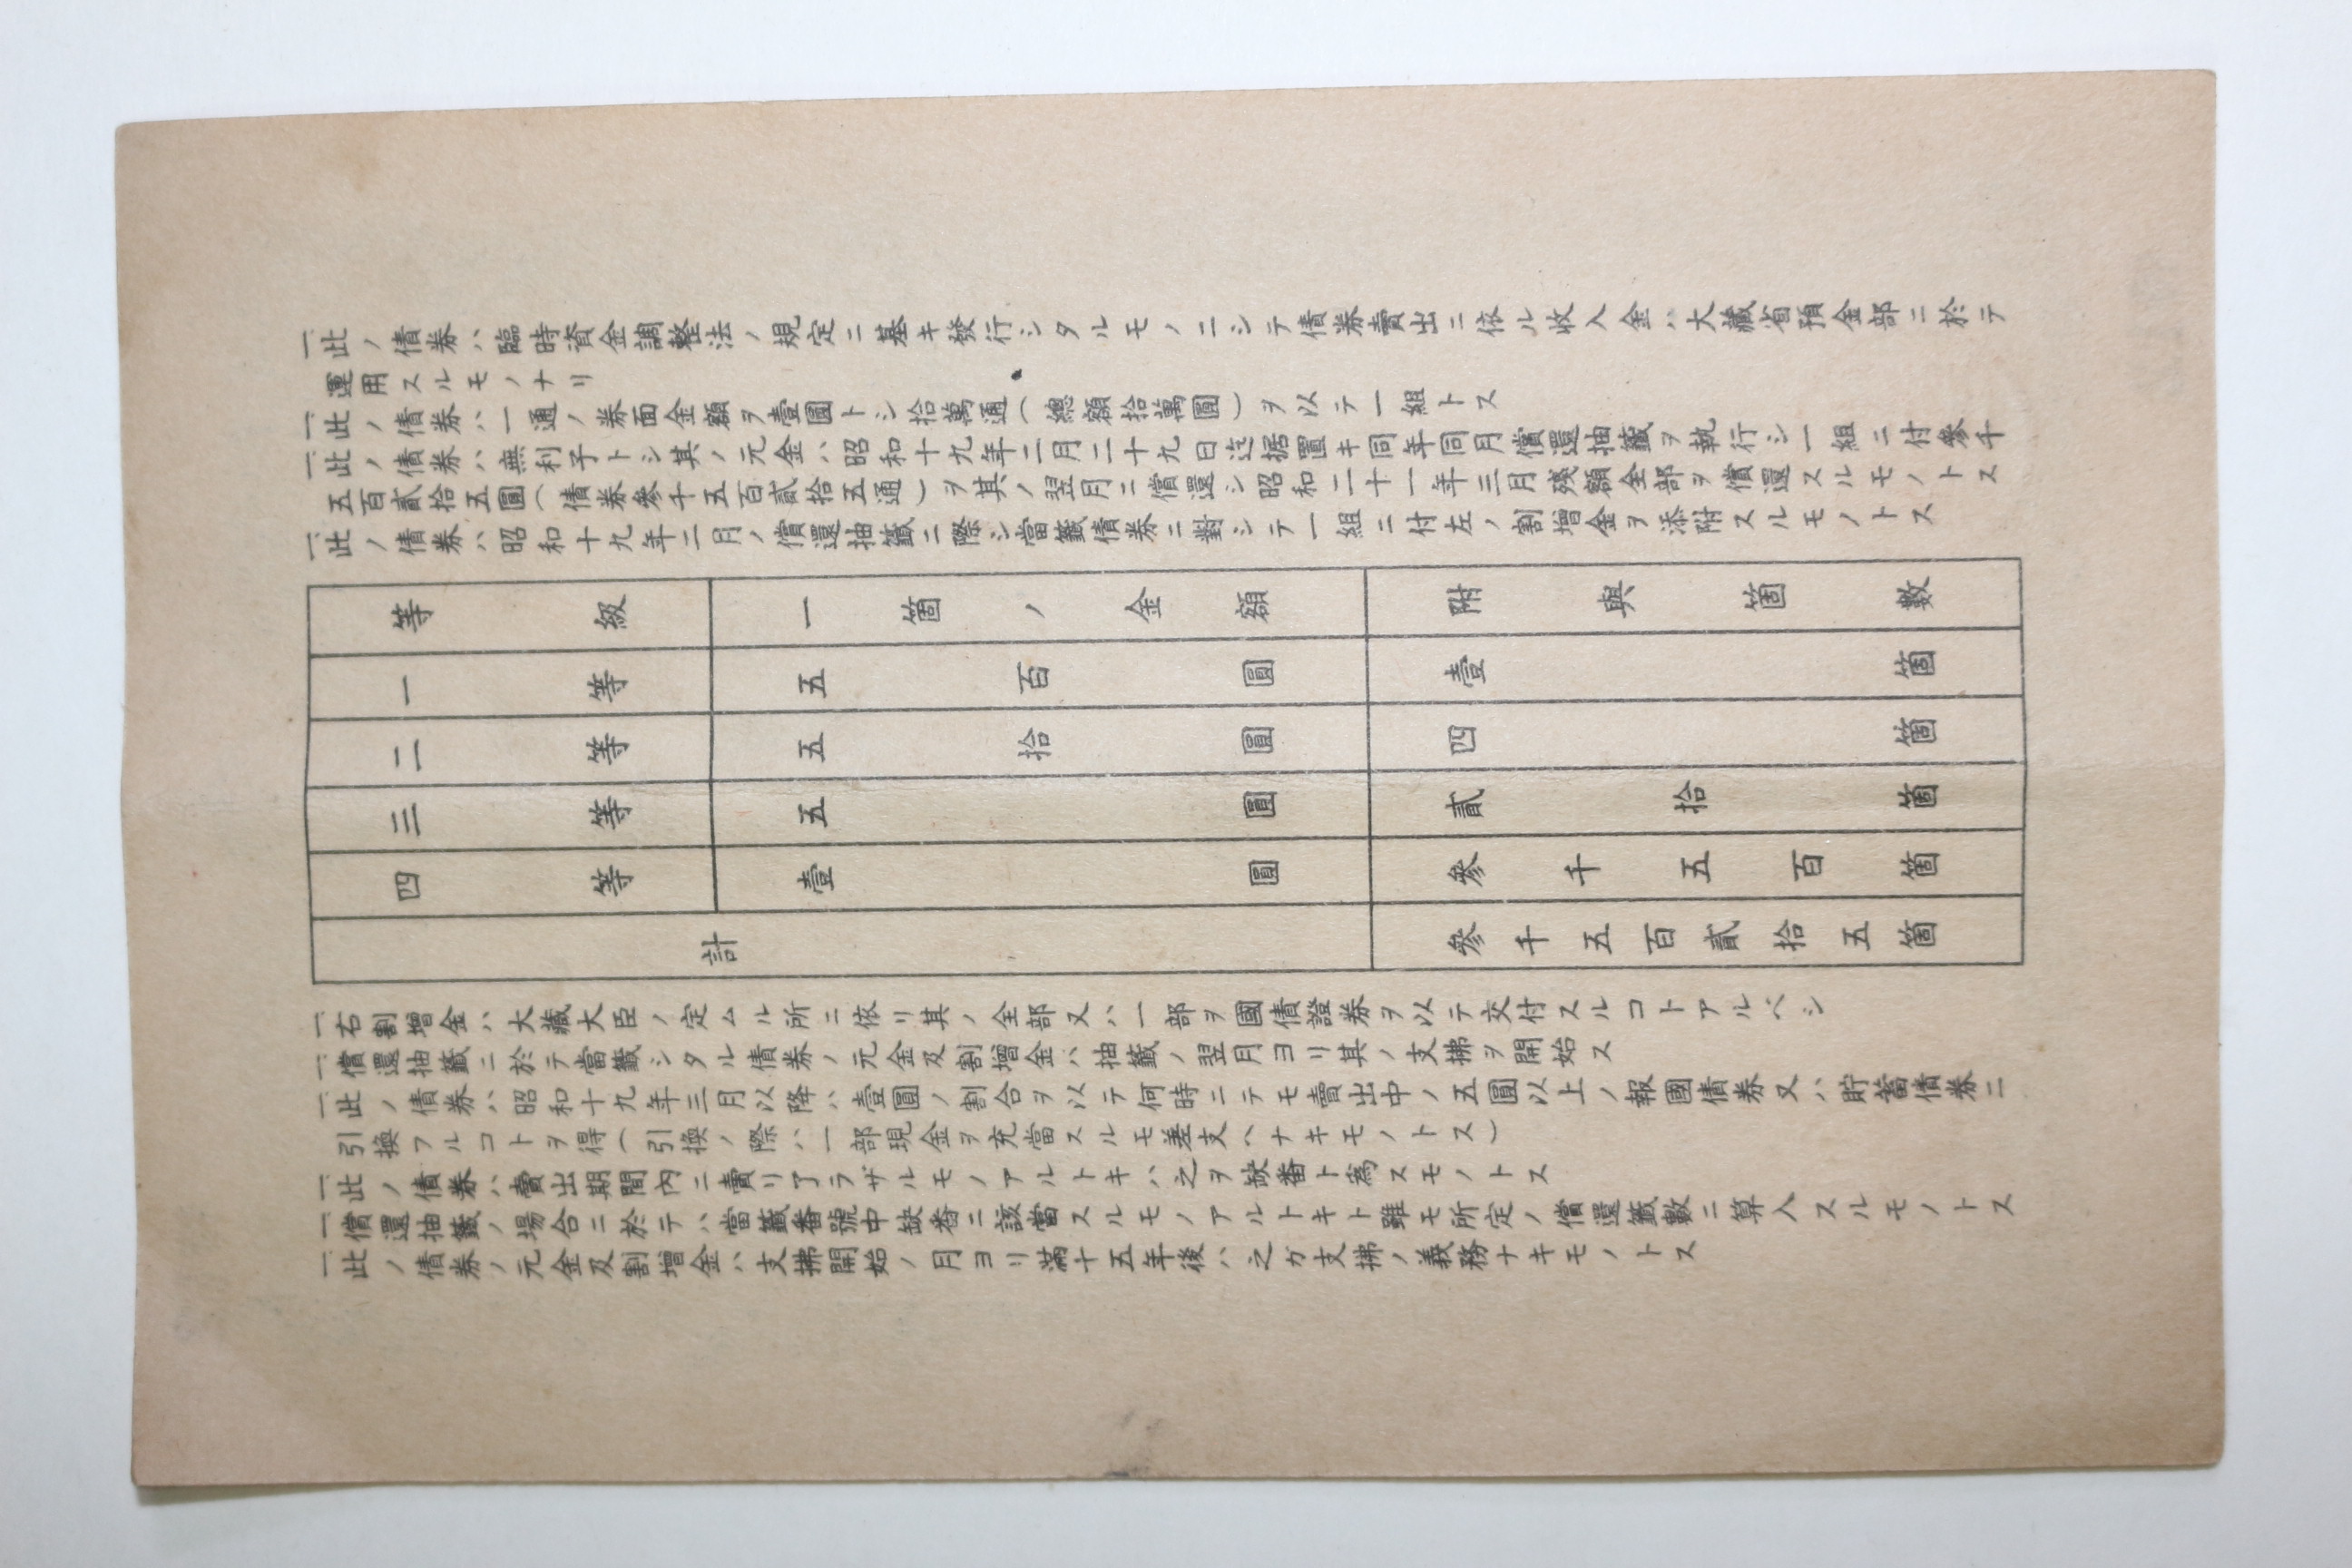 一、此ノ債券ハ臨時資金調整法ノ規定ニ基キ發行シタルモノニシテ債券賣出ニ依ル收入金ハ大藏省預金部ニ於テ
運用スルモノナリ
一、此ノ債券ハ一通ノ券面金額ヲ壹圓トシ拾萬通(總額拾萬圓)ヲ以テ一組トス
一、此ノ債券ハ無利子トシ其ノ元金ハ昭和十九年二月二十九日迄据置キ同年同月償還抽籤ヲ執行シ一組ニ付參千
五百貳拾五圓(債券參千五百貳拾五通)ヲ其ノ翌月ニ償還シ昭和二十一年三月殘額全部ヲ償還スルモノトス
一、此ノ債券ハ昭和十九年二月ノ償還抽籤ニ際シ當籤債券ニ對シテ一組ニ付左ノ割増金ヲ添附スルモノトス
等級 一箇ノ金額 附與箇數
一等 五百圓 壹箇
二等 五拾圓 四箇
三等 五圓 貳拾箇
四等 壹圓 參千五百箇
計 參千五百貳拾五箇
一、右割増金ハ大藏大臣ノ定ムル所ニ依リ其ノ全部又ハ一部ヲ國債證券ヲ以テ交付スルコトアルベシ
一、償還抽籤ニ於テ當籤シタル債券ノ元金及割増金ハ抽籤ノ翌月ヨリ其ノ支拂ヲ開始ス
一、此ノ債券ハ昭和十九年三月以降ハ壹圓ノ割合ヲ以テ何時ニテモ賣出中ノ五圓以上ノ報國債券又ハ貯蓄債券ニ
引換フルコトヲ得(引換ノ際ハ一部現金ヲ充當スルモ差支ヘナキモノトス)
一、此ノ債券ハ賣出期間內ニ賣リ了ラザルモノアルトキハ之ヲ缺番ト爲スモノトス
一、償還抽籤ノ場合ニ於テハ當籤番號中缺番ニ該當スルモノアルトキト雖モ所定ノ償還籤數ニ算入スルモノトス
一、此ノ債券ノ元金及割増金ハ支拂開始ノ月ヨリ滿十五年後ハ之ガ支拂ノ義務ナキモノトス